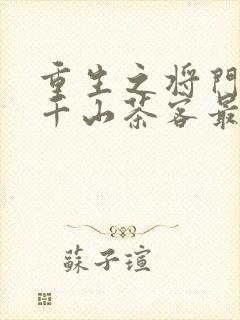 重生之将门
千山茶客最
蘇子瑄